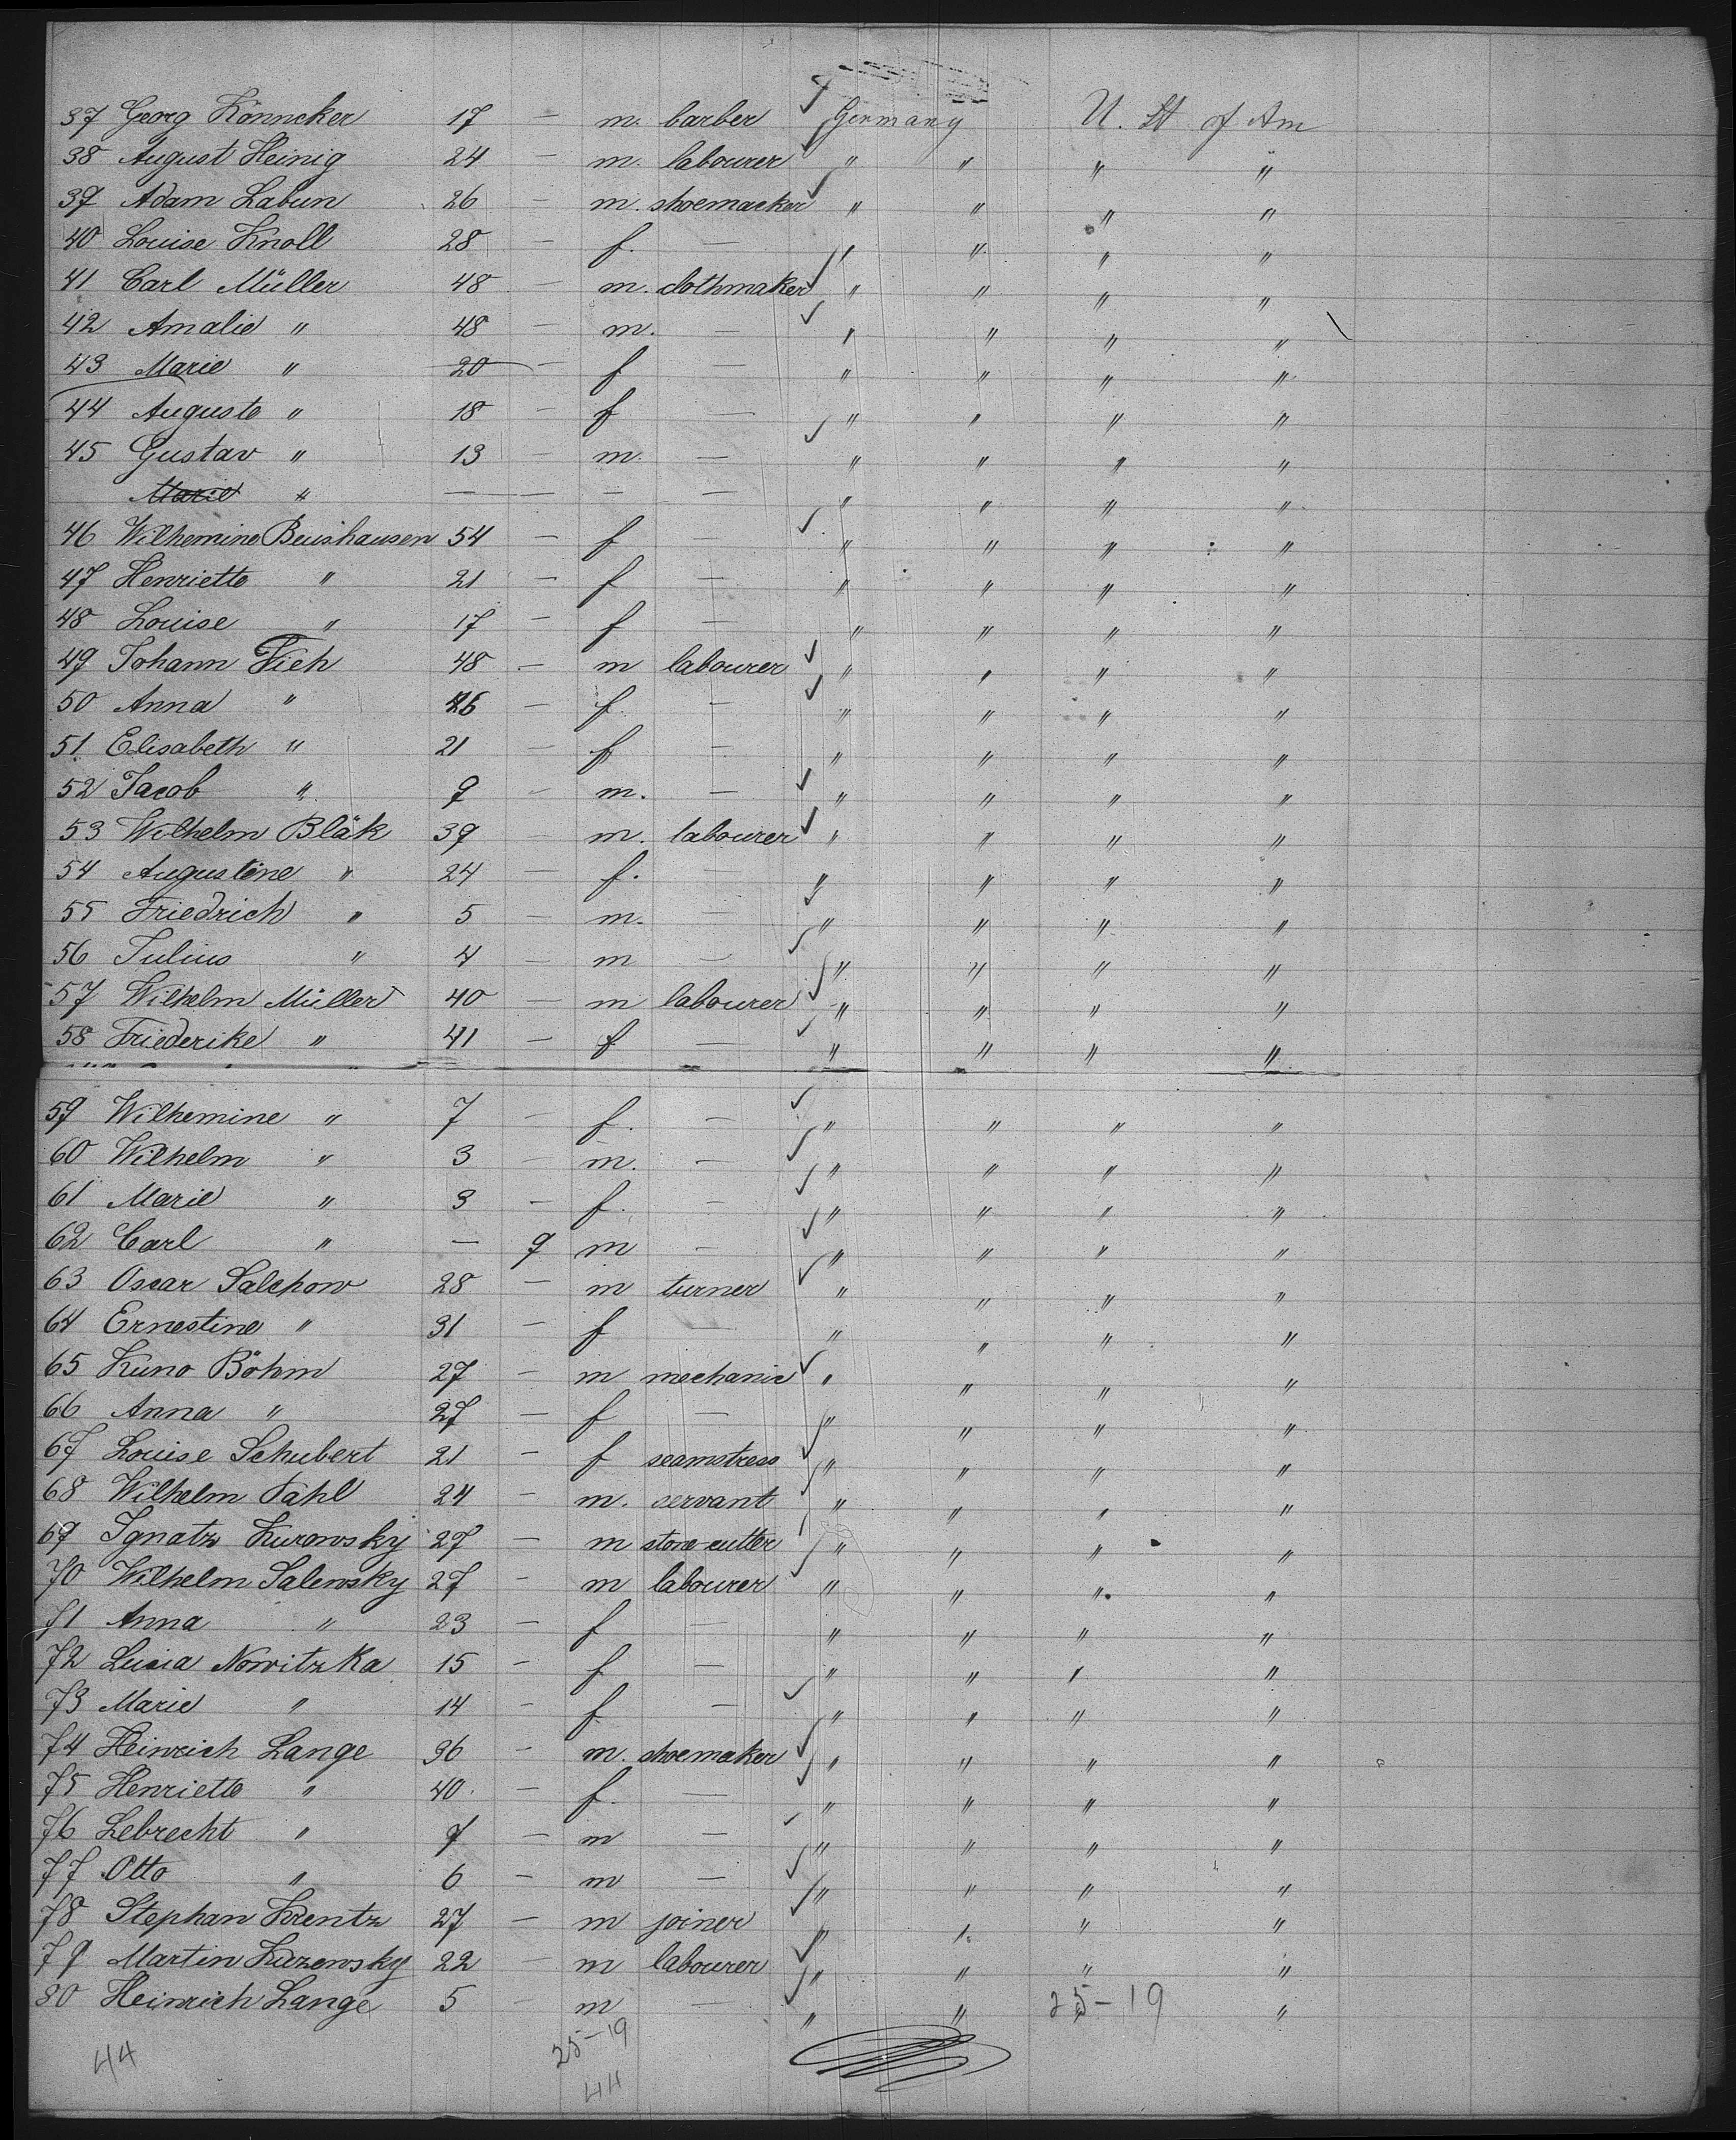 37 Georg Könncker 17 — m. barber Germany U. St of Am
38 August Heinig 24 — m. labourer " " " "
39 Adam Labun 26 — m. shoemacker " " " "
40 Louise Knoll 28 — f. — " " " "
41 Carl Müller 48 — m. clothmaker " " " "
42 Amalie " 48 — m. — " " " "
43 Marie " 20 — f — " " " "
44 Auguste " 18 — f — " " " "
45 Gustav " 13 — m. — " " " "
Marie " — — — — " " " "
46 Wilhemine Beushausen 54 — f — " " " "
47 Henriette " 21 — f — " " " "
48 Louise " 17 — f — " " " "
49 Johann Fich 48 — m labourer " " " "
50 Anna " 46 — f. — " " " "
51 Elisabeth " 21 — f — " " " "
52 Jacob " 9 — m. — " " " "
53 Wilhelm Bläk 39 — m. labourer " " " "
54 Augustine " 24 — f. — " " " "
55 Friedrich " 5 — m. — " " " "
56 Julius " 4 — m — " " " "
57 Wilhelm Müller 40 — m labourer " " " "
58 Friederike " 41 — f — " " " "
59 Wilhemine " 7 — f. — " " " "
60 Wilhelm " 3 — m. — " " " "
61 Marie " 3 — f. — " " " "
62 Carl " — 9 m — " " " "
63 Oscar Salchow 28 — m turner " " " "
64 Ernestine " 31 — f — " " " "
65 Kuno Böhm 27 — m mechanic " " " "
66 Anna " 27 — f — " " " "
67 Louise Schubert 21 — f seamstress " " " "
68 Wilhelm Pahl 24 — m. servant " " " "
69 Ignatz Kurowsky 27 — m stone-cutter " " " "
70 Wilhelm Salewsky 27 — m labourer " " " "
71 Anna " 23 — f — " " " "
72 Lucia Nowitzka 15 — f — " " " "
73 Marie " 14 — f. — " " " "
74 Heinrich Lange 36 — m. shoemaker " " " "
75 Henriette " 40 — f. — " " " "
76 Lebrecht " 9 — m — " " " "
77 Otto " 6 — m — " " " "
78 Stephan Krentz 27 — m joiner " " " "
79 Martin Kuzewsky 22 — m labourer " " " "
80 Heinrich Lange 5 — m — " " 25-19 "
44 25-19
44